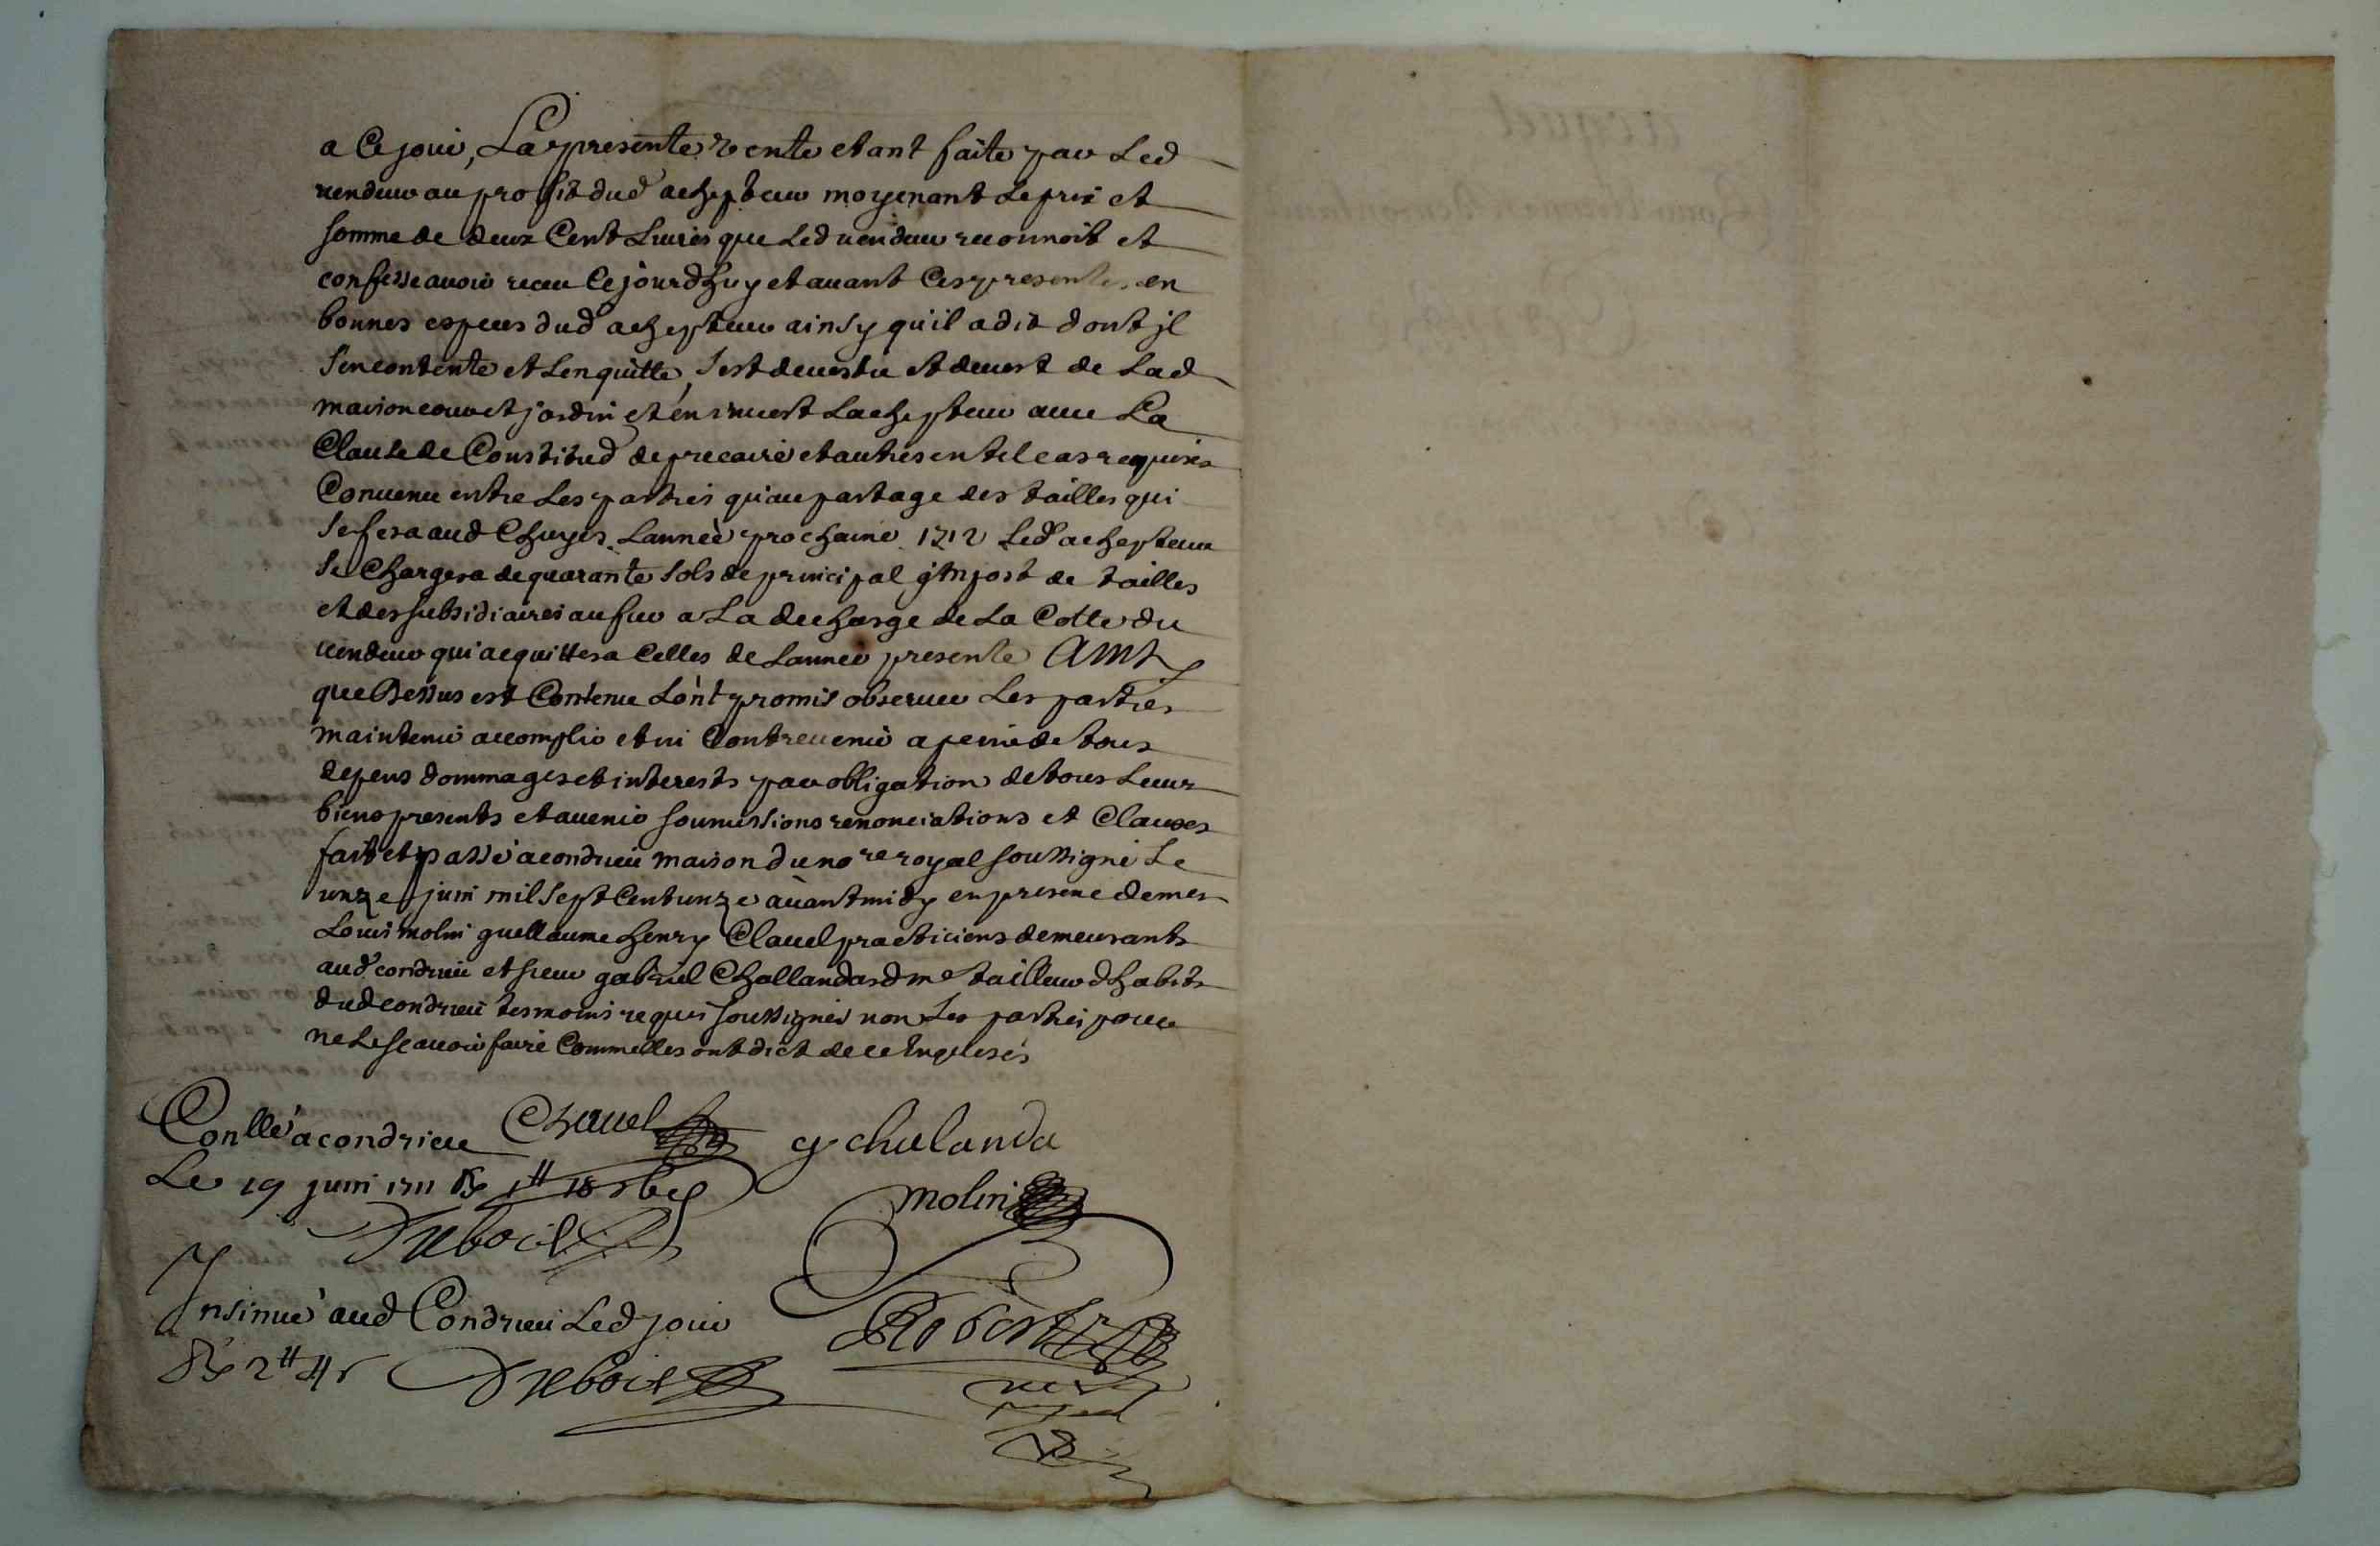 a Ce jour, La presente vente etant faite par Led
vendeur au profit dud achepteur moyenant le prix et
somme de deux Cent Livres que Led vendeur reconnoit et
confesse avoir receu Ce jourdhuy et avant Ces presentes en
bonnes especes dud achepteur ainsy quil a dit dont jl
sen contente et Len quitte, sest devestu et devest de Lad
maison cour et jardin et en invest Lachepteur avec La
Clause de Constitud de precaire et autres en tel cas requises
Convenu entre Les parties quau partage des tailles qui
se fera aud Chuyes Lannée prochaine 1712 Led achepteur
se Chargera de quarante sols de principal jmpost de tailles
et des subsidiaires au fur a La decharge de La Cotte du
vendeur qui acquittera Celles de Lannée presente
que Dessus est Contenu Lont promis observer Les parties
maintenir accomplir et ni Contrevenir a peine de tous
depens dommages et interests par obligation de tous Leurs
biens presents et avenir soumissions renonciations et Clauses
fait et passé a condrieu maison du nore royal soussigné Le
unze juin mil sept Cent unze avant midy en presence de mes
Louis molin guellaume henry Clavel practiciens demeurants
aud condrieu et sieur gabriel Challandard me tailleur dhabits
dud condrieu tesmoins requis soussignés non Les parties pour
ne Le scavoir faire Comme elles ont dict de ce Enquises
Conllé a condrieu Chavel g chalanda
Le 19 juin 1711
molin
Dubois
Insinué aud Condrieu Led jour
Robert
2tt
Dubois